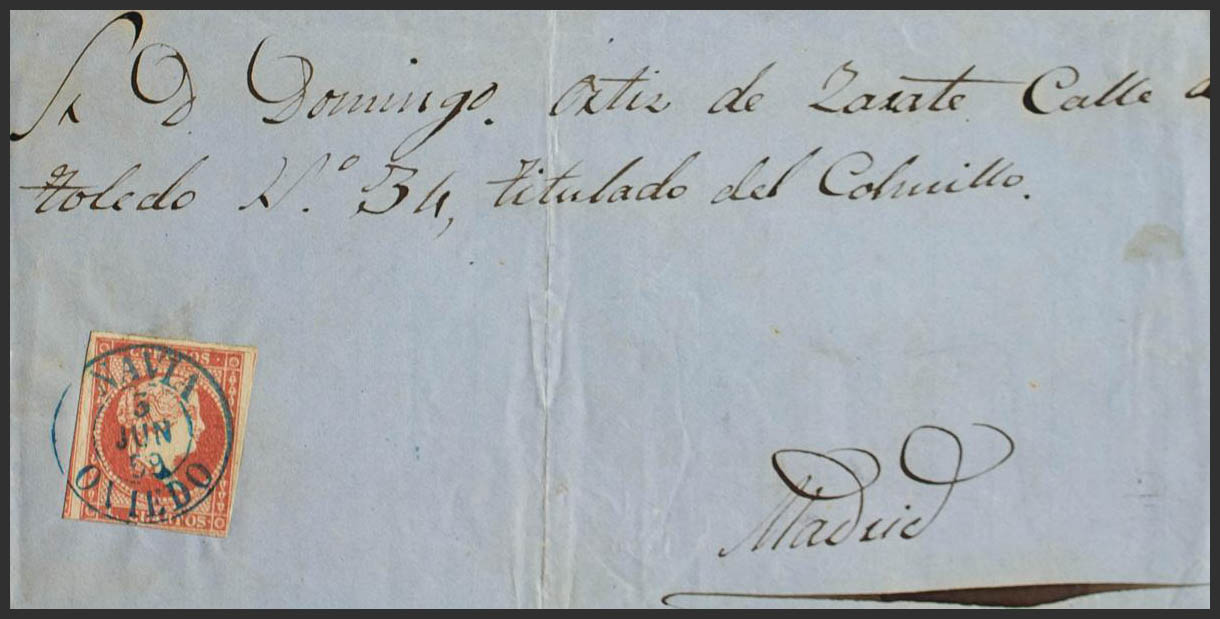 Sr D. Domingo. Ortiz de Zarate Calle
toledo N.º 34, titulado del Colmillo.
NAVIA
5
JUN
59
OVIEDO
Madrid